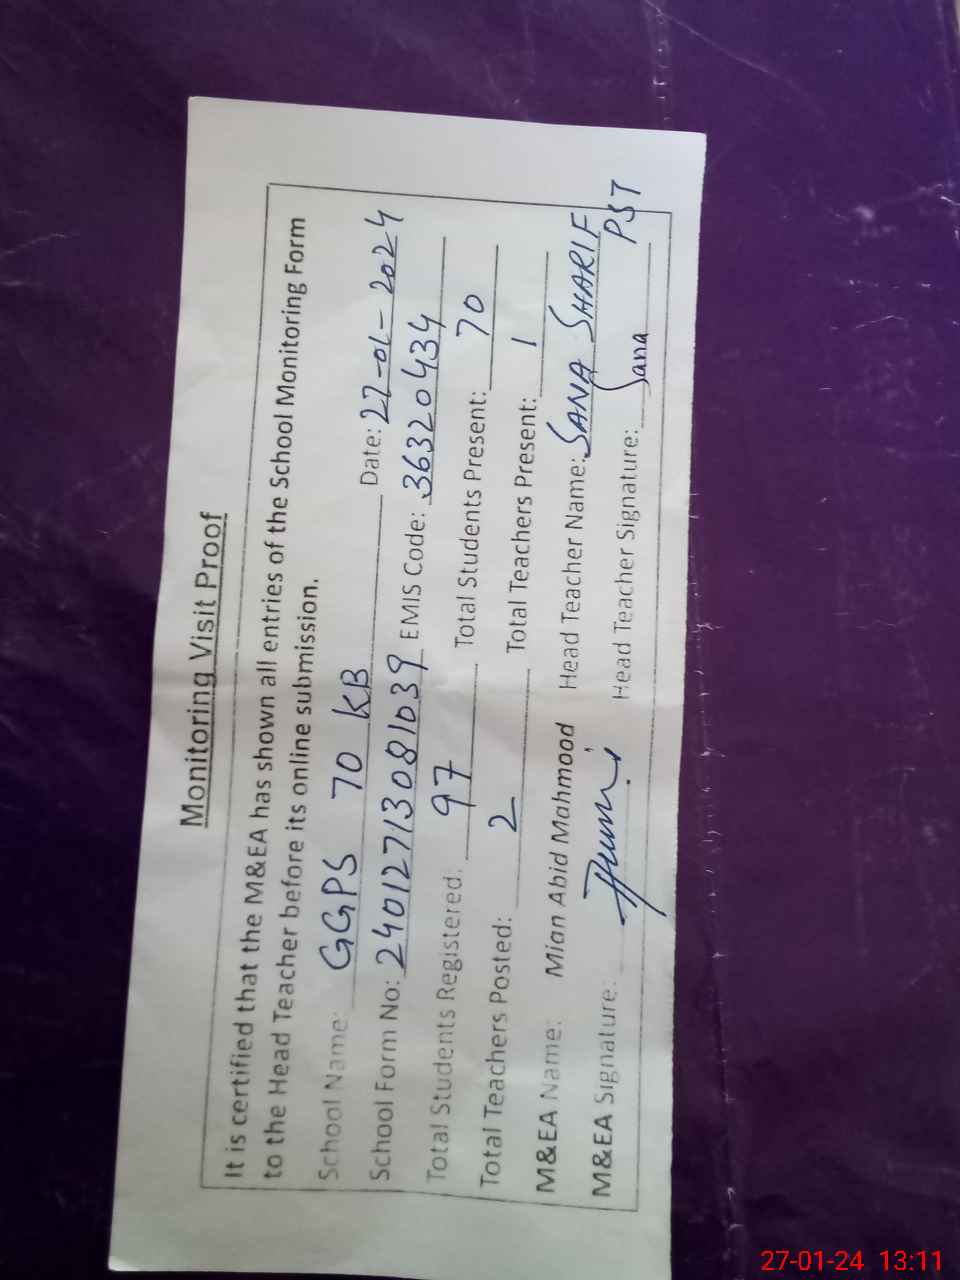 Monitoring Visit Proof
It is certified that the M&EA has shown all entries of the School Monitoring Form
to the Head Teacher before its online submission.
School Name: GGPS 70 KB Date: 27-01-2024
School Form No: 24012713081039 EMIS Code: 36320434
Total Students Registered: 97 Total Students Present: 70
Total Teachers Posted: 2 Total Teachers Present: 1
M&EA Name: Mian Abid Mahmood Head Teacher Name: SANA SHARIF
M&EA Signature: Head Teacher Signature: Sana PST
27-01-24 13:11